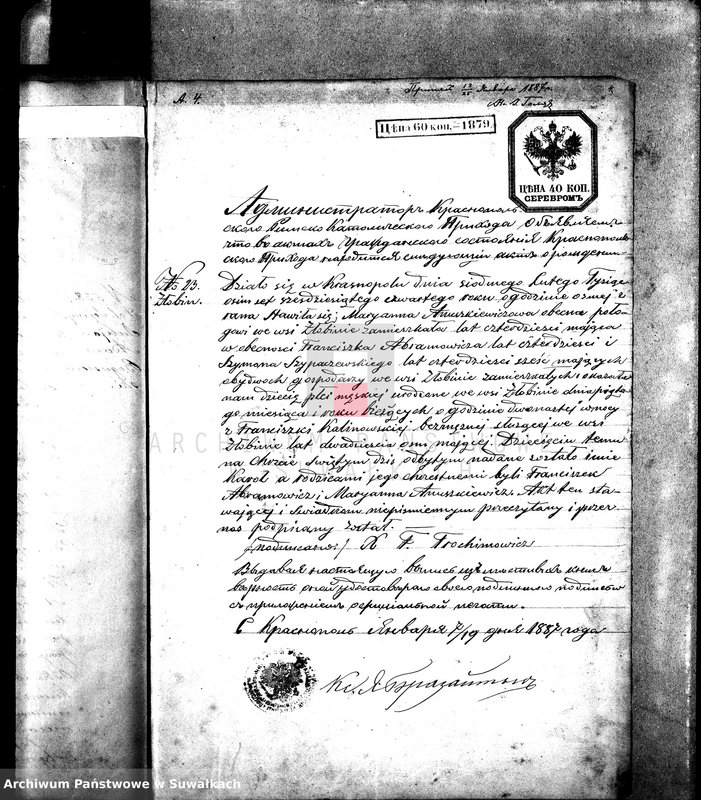 А. 4.
12/25 Января 1887 г.
Цѣна 60 коп.—1879.
ЦѢНА 40 КОП.
СЕРЕБРОМЪ
Администраторъ Краснополь-
скаго Римско Католическаго Прихода Объявляетъ
что въ актахъ гражданскаго состоянія Краснополь
скаго Прихода находится слѣдующій актъ о рожденіи.
№ 23.
Żłobin.
Działo się w Krasnopolu dnia siodmego Lutego Tysiąc
osimset szesdziesiątego czwartego roku o godzinie osmej z
rana Stawiła się Maryanna Anuszkiewiczowa obecna poło-
gowi we wsi Żłobinie zamieszkała lat czterdzieści mająca
w obecności Franciszka Abramowicza lat czterdzieści i
Szymona Szyparzewskiego lat czterdzieści sześć mających
obydwoch gospodarzy we wsi Żłobinie zamieszkałych i okazała
nam dziecię płci męzkiej urodzone we wsi Żłobinie dnia piąte-
go miesiąca i roku bieżących o godzinie dwunastej w nocy
z Franciszki Kalinowskiej bezmężnej służącej we wsi
Żłobinie lat dwadzieścia osm mającej. Dziecięciu temu
na Chrzcie Swiętym dziś odbytym nadane zostało imie
Karol a rodzicami jego chrzestnemi byli Franciszek
Abramowicz i Maryanna Anuszkiewicz. Akt ten sta-
wającej i Swiadkom niepismiennym przeczytany i przez
nas podpisany został.
/подписано/ X F. Trochimowicz
Выдавая настоящую выпись изъ метовыхъ книгъ
вѣрность оной удостовѣряю своеручною подписью
съ приложеніемъ оффиціальной печати.
С Краснополь Января 7/19 дня 1887 года
ARCHIWUM PAŃSTWOWE
W SUWAŁKACH
Archiwum Państwowe w Suwałkach